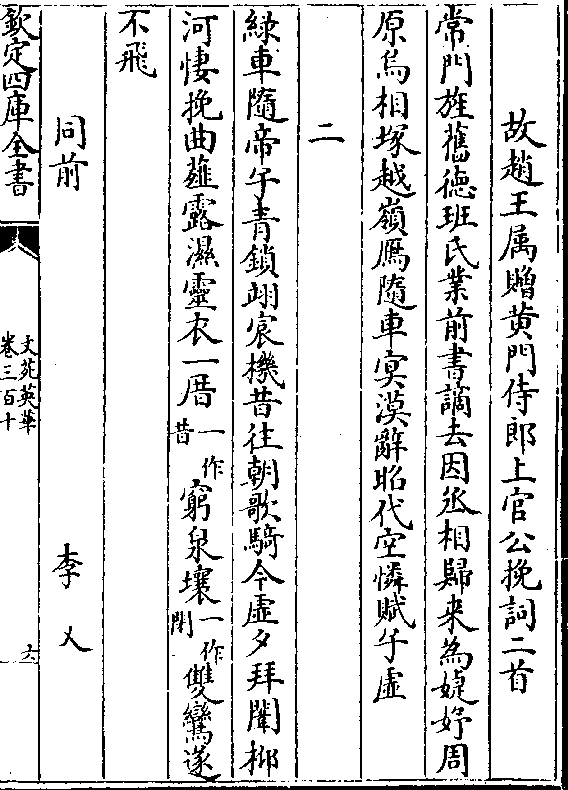 故趙王属贈黃門侍郎上官公挽詞二首
常門旌舊德班氏業前書謫去因丞相歸来為婕妤周
原烏相塚越嶺鴈隨車冥漠辭昭代空憐賦子虛
二
緑車隨帝子青鎖翊宸機昔往朝歌騎今虛夕拜闈栁
河悽挽曲薤露濕靈衣一厝一作昔窮泉壤一作閉雙鸞遂
不飛
同前 李乂
欽定四庫全書
文苑英華
卷三百十
六